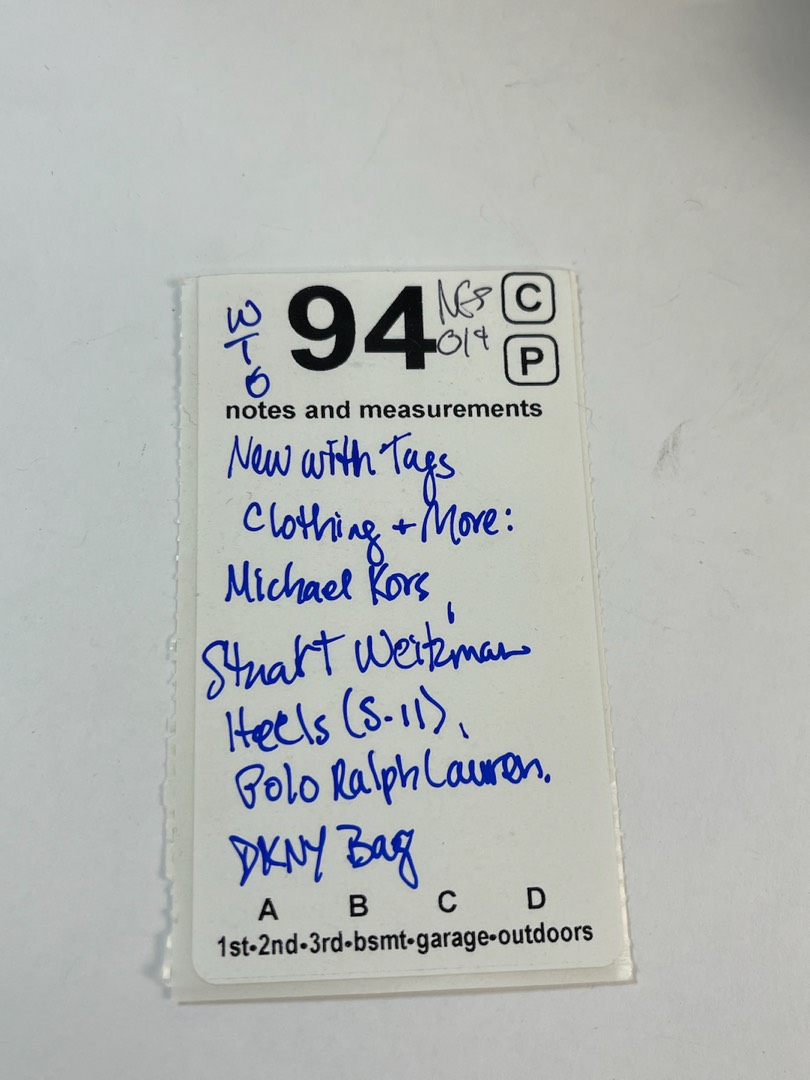 W
T
O
94
C
014
P
notes and measurements
New with Tags
Clothing + More:
Michael Kors,
Stuart Weitzman
Heels (S.11),
Polo Ralph Lauren.
DKNY Bag
A B C D
1st•2nd•3rd•bsmt•garage•outdoors